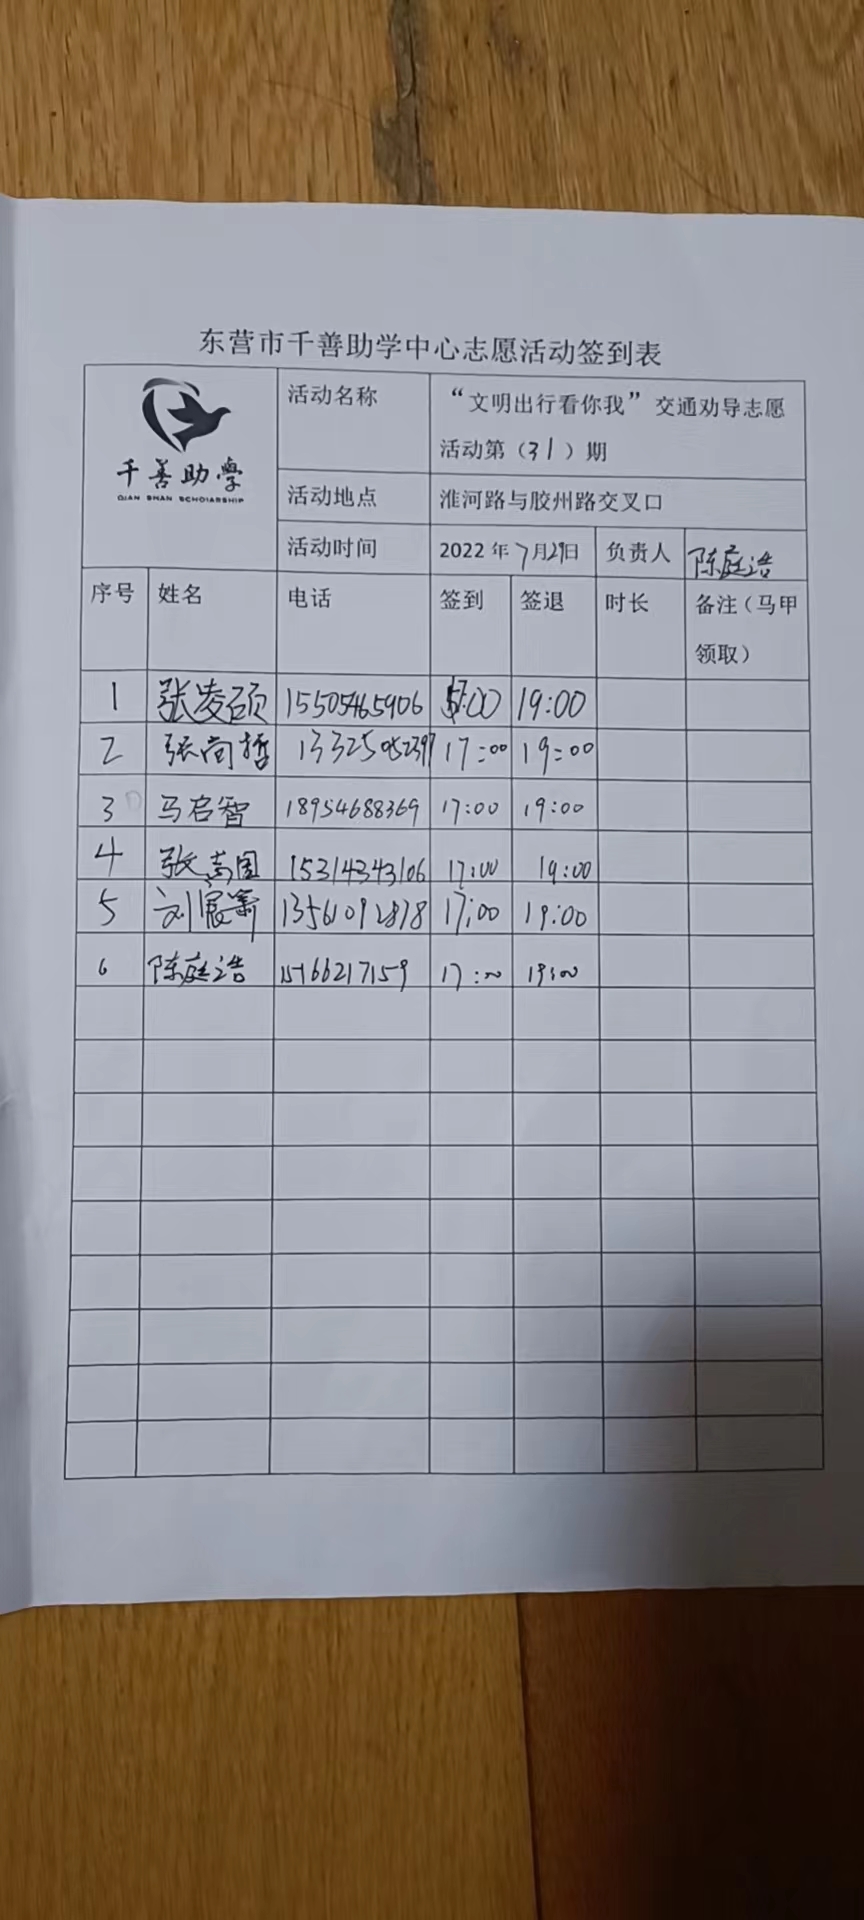 东营市千善助学中心志愿活动签到表
千善助学
QIAN SHAN SCHOLARSHIP
活动名称 “文明出行看你我”交通劝导志愿
活动第（31）期
活动地点 淮河路与胶州路交叉口
活动时间 2022年7月29日 负责人 陈庭浩
序号 姓名 电话 签到 签退 时长 备注（马甲
领取）
1 张凌硕 15505465906 17:00 19:00
2 张尚哲 13325052397 17:00 19:00
3 马启智 18954688369 17:00 19:00
4 张高国 15314343106 17:00 19:00
5 刘宸 13561092878 17:00 19:00
6 陈庭浩 15166217159 17:00 19:00